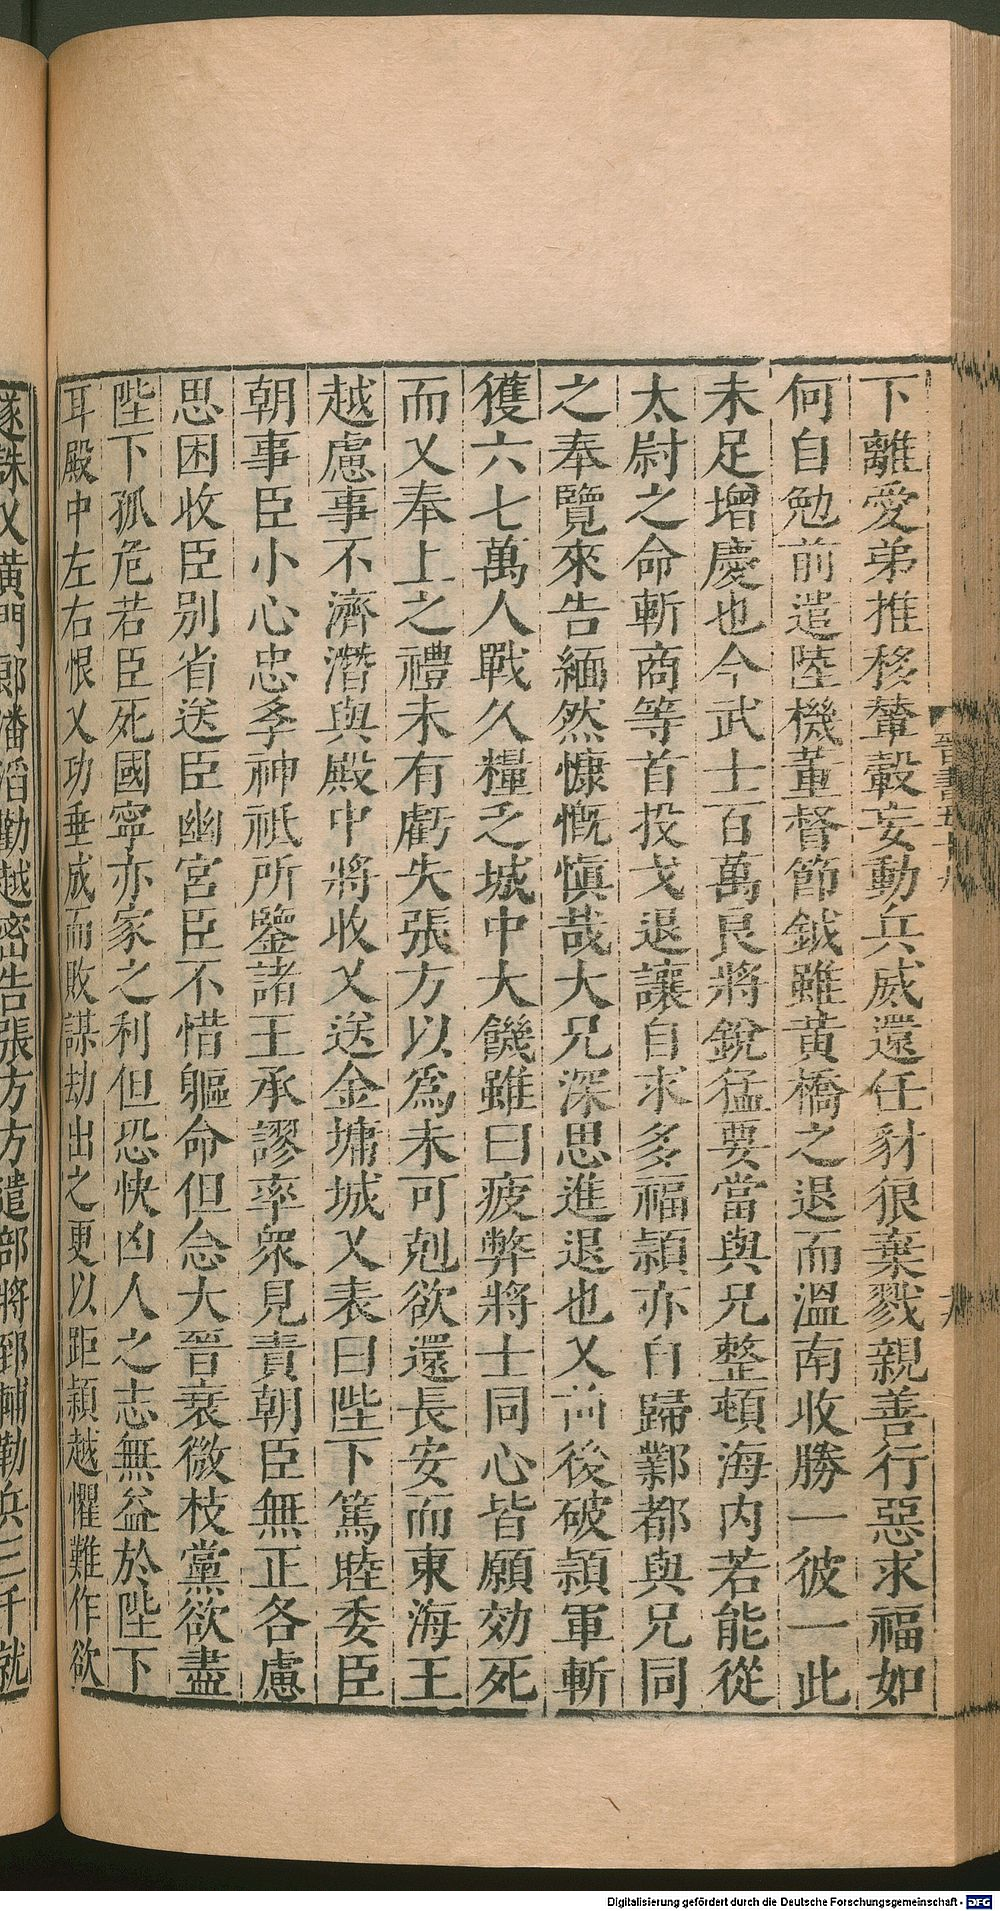 下離愛弟推移輦轂妄動兵威還任豺狼棄戮親善行惡求福如
何自勉前遣陸機董督節鉞雖黃橋之退而溫南收勝一彼一此
未足增慶也今武士百萬良將銳猛要當與兄整頓海内若能從
太尉之命斬商等首投戈退讓自求多福潁亦自歸鄴都與兄同
之奉覽來告緬然慷慨愼哉大兄深思進退也乂前後破潁軍斬
獲六七萬人戰久糧乏城中大饑雖曰疲弊將士同心皆願効死
而乂奉上之禮未有虧失張方以爲未可剋欲還長安而東海王
越慮事不濟潛與殿中將收乂送金墉城乂表曰陛下篤睦委臣
朝事臣小心忠孝神祇所鑒諸王承謬率衆見責朝臣無正各慮
思困收臣別省送臣幽宮臣不惜軀命但念大晉衰微枝黨欲盡
陛下孤危若臣死國寧亦家之利但恐快凶人之志無益於陛下
耳殿中左右恨乂功垂成而敗謀劫出之更以距潁越懼難作欲
遂誅乂黃門郎潘滔勸越密告張方方遣部將郅輔勒兵三千就
晉書五十九
九
Digitalisierung gefördert durch die Deutsche Forschungsgemeinschaft - DFG